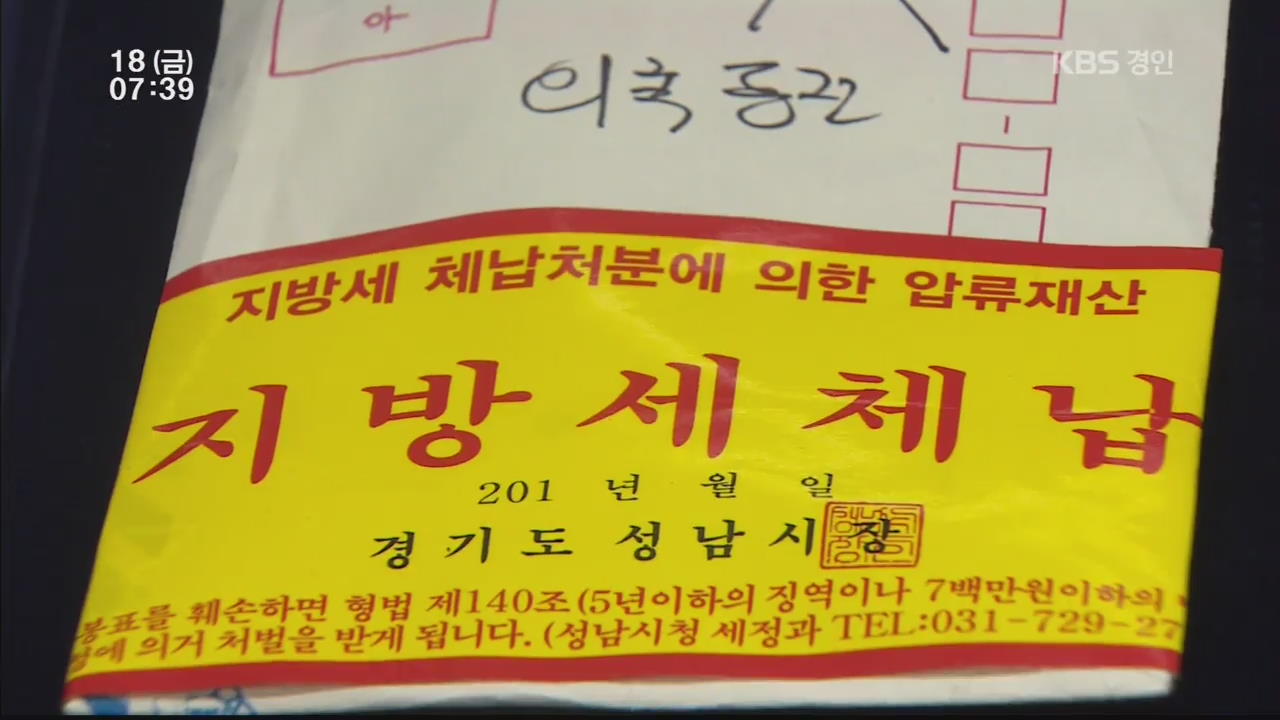 18 (금)
07:39
KBS 경인
아
외국동전
지방세 체납처분에 의한 압류재산
지방세체납
201 년 월 일
경기도 성남시장
봉표를 훼손하면 형법 제140조(5년이하의 징역이나 7백만원이하의
에 의거 처벌을 받게 됩니다. (성남시청 세정과 TEL:031-729-27